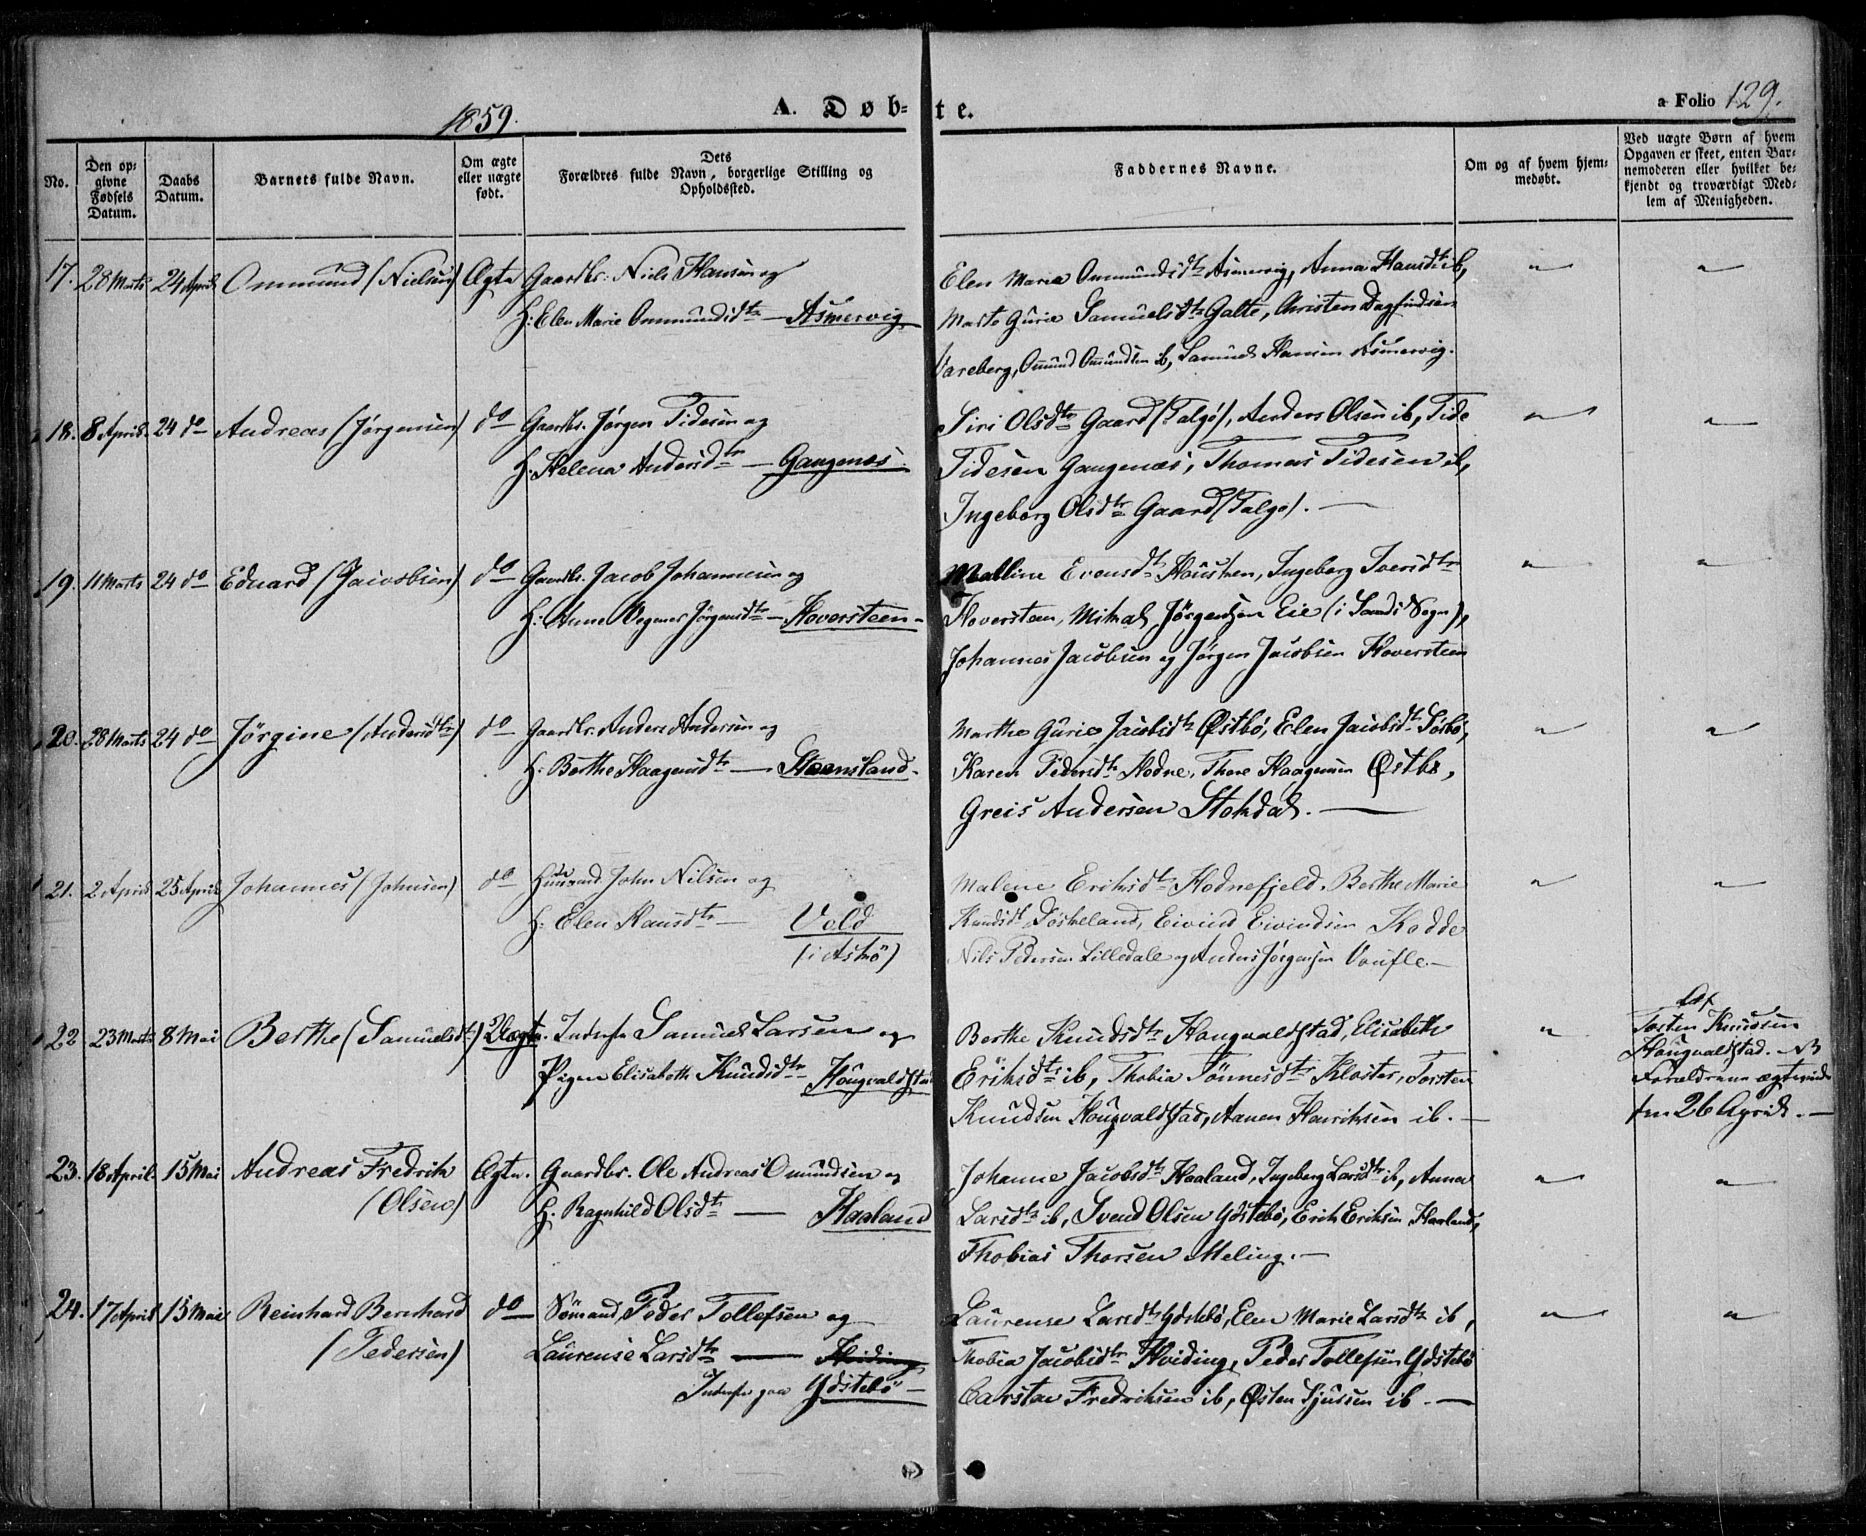 1859.
A. Døb-
te.
a Folio 129.
No.
Den op-
givne
Fødsels
Datum.
Daabs
Datum.
Barnets fulde Navn.
Om ægte
eller uægte
født.
Dets
Forældres fulde Navn, borgerlige Stilling og
Opholdssted.
Faddernes Navne.
Om og af hvem hjem-
medøbt.
Ved uægte Børn af hvem
Opgaven er skeet, enten Bar-
nemoderen eller hvilket be-
kjendt og troværdigt Med-
lem af Menigheden.
17. 28 Marts 24 April Ommund (Nielsen) Ægte Gaardbr. Niels Hansen og
H: Elen Marie Ommundsdtr — Asmervig
Elen Maria Ommundsdtr Asmervig, Anna Hansdtr ib,
Marte Gurie Samuelsdtr Galte, Christen Dagfindsen
Vareberg, Omund Omundsen ib, Samuel Hansen Asmervig.
18. 8 April. 24 do Andreas (Jørgensen) do Gaardbr. Jørgen Tidesen og
H. Helena Andersdtr — Gangenæs.
Siri Olsdtr Gaard (Talgø), Anders Olsen ib, Tide
Tidesen Gangenæs, Thomas Tidesen ib,
Ingeborg Olsdtr Gaard (Talgø). —
19. 11 Marts 24 do Eduard (Jacobsen) do Gaardbr. Jacob Johannesen og
H: Anne Jørgensdtr — Hoversteen —
Malline Evensdtr Ingeborg Iversdtr
Hoversteen, Mikal Jørgensen Eie (i Sands Sogn),
Johannes Jacobsen og Jørgen Jacobsen Hoversteen
20. 28 Marts 24 do Jørgine (Andersdtr) do Gaardbr. Anders Andersen og
H. Berthe Haagensdtr — Steensland.
Marthe Gurie Jacobsdtr Østbø, Elen Jacobsdtr Sørbø,
Karen Pedersdtr Hodne, Thore Haagensen Østbø,
Greis Andersen Stokdal. —
21. 2 April 25 April Johannes (Johnsen) do Huusmd. John Nilsen og
H. Elen Hansdtr — Vold
(i Askø)
Malene Eriksdtr Hodnefjeld. Berthe Marie
Knudsdtr Døskeland, Eivind Eivindsen Hodde
Nils Pedersen Lilledale og Anders Jørgensen Voufle. —
22 23 Marts 8 Mai Berthe (Samuelsdtr) Uægte. Inderst Samuel Larsen og
Pigen Elisabeth Knudsdtr Hougvaldstad
Berthe Knudsdtr Haugvaldstad, Elisabeth
Eriksdtr ib, Thobia Tønnesdtr Kloster, Torsten
Knudsen Hougvaldstad, Aanen Henriksen ib. —
Af
Torsten Knudsen
Hougvaldstad. NB
Forældrene ægteviede
den 26 April. —
23. 18 April. 15 Mai Andreas Fredrik Ægte. Gaardbr. Ole Andreas Omundsen og
(Olsen) H. Ragnhild Olsdtr — Haaland
Johanne Jacobsdtr Haaland, Ingeborg Larsdtr ib, Anna
Larsdtr ib, Svend Olsen Ydstebø, Erik Eriksen Haaland,
Thobias Thorsen Meling. —
24. 17 April 15 Mai Reinhard Bernhard do Sømand, Peder Tollefsen og
(Pedersen) Laurense Larsdtr — Hviding
Inderst paa Ydstebø —
Laurense Larsdtr Ydstebø, Elen Marie Larsdtr ib,
Thobia Jacobsdtr Hviding, Peder Tollefsen Ydstebø
Carsten Fredriksen ib, Østen Sjursen ib. —